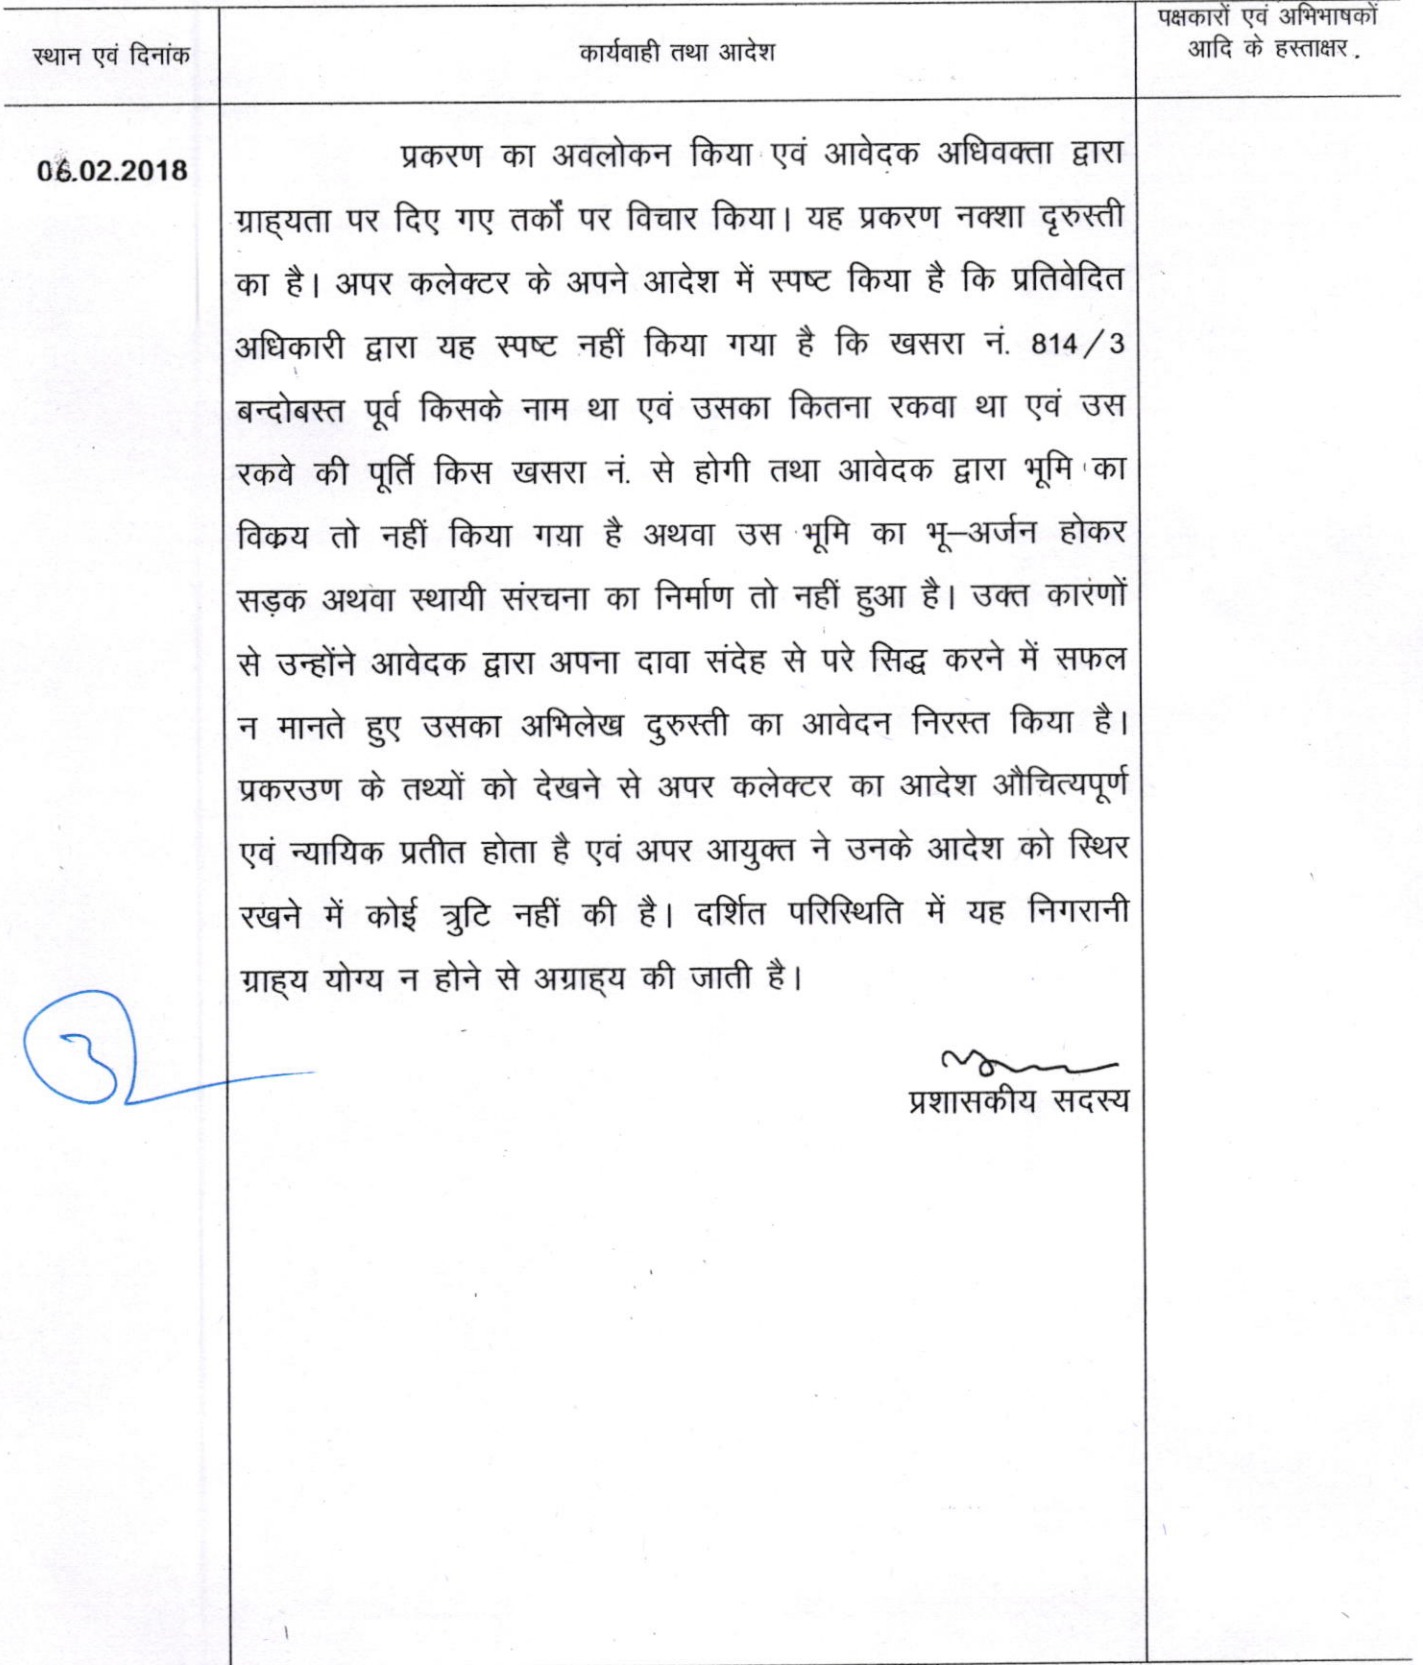 स्थान एवं दिनांक
कार्यवाही तथा आदेश
पक्षकारों एवं अभिभाषकों
आदि के हस्ताक्षर .
06.02.2018
प्रकरण का अवलोकन किया एवं आवेदक अधिवक्ता द्वारा
ग्राह्यता पर दिए गए तर्कों पर विचार किया। यह प्रकरण नक्शा दृरुस्ती
का है। अपर कलेक्टर के अपने आदेश में स्पष्ट किया है कि प्रतिवेदित
अधिकारी द्वारा यह स्पष्ट नहीं किया गया है कि खसरा नं. 814/3
बन्दोबस्त पूर्व किसके नाम था एवं उसका कितना रकवा था एवं उस
रकवे की पूर्ति किस खसरा नं. से होगी तथा आवेदक द्वारा भूमि का
विक्रय तो नहीं किया गया है अथवा उस भूमि का भू–अर्जन होकर
सड़क अथवा स्थायी संरचना का निर्माण तो नहीं हुआ है। उक्त कारणों
से उन्होंने आवेदक द्वारा अपना दावा संदेह से परे सिद्ध करने में सफल
न मानते हुए उसका अभिलेख दुरुस्ती का आवेदन निरस्त किया है।
प्रकरउण के तथ्यों को देखने से अपर कलेक्टर का आदेश औचित्यपूर्ण
एवं न्यायिक प्रतीत होता है एवं अपर आयुक्त ने उनके आदेश को स्थिर
रखने में कोई त्रुटि नहीं की है। दर्शित परिस्थिति में यह निगरानी
ग्राह्य योग्य न होने से अग्राह्य की जाती है।
प्रशासकीय सदस्य